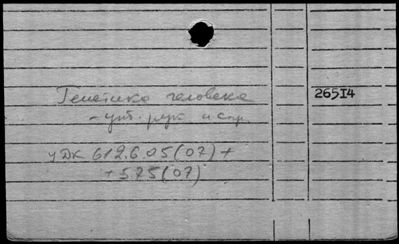 Генетика человека
265I4
- учт. рук. и спр.
УДК 612.6.05(07)+
+575(07)